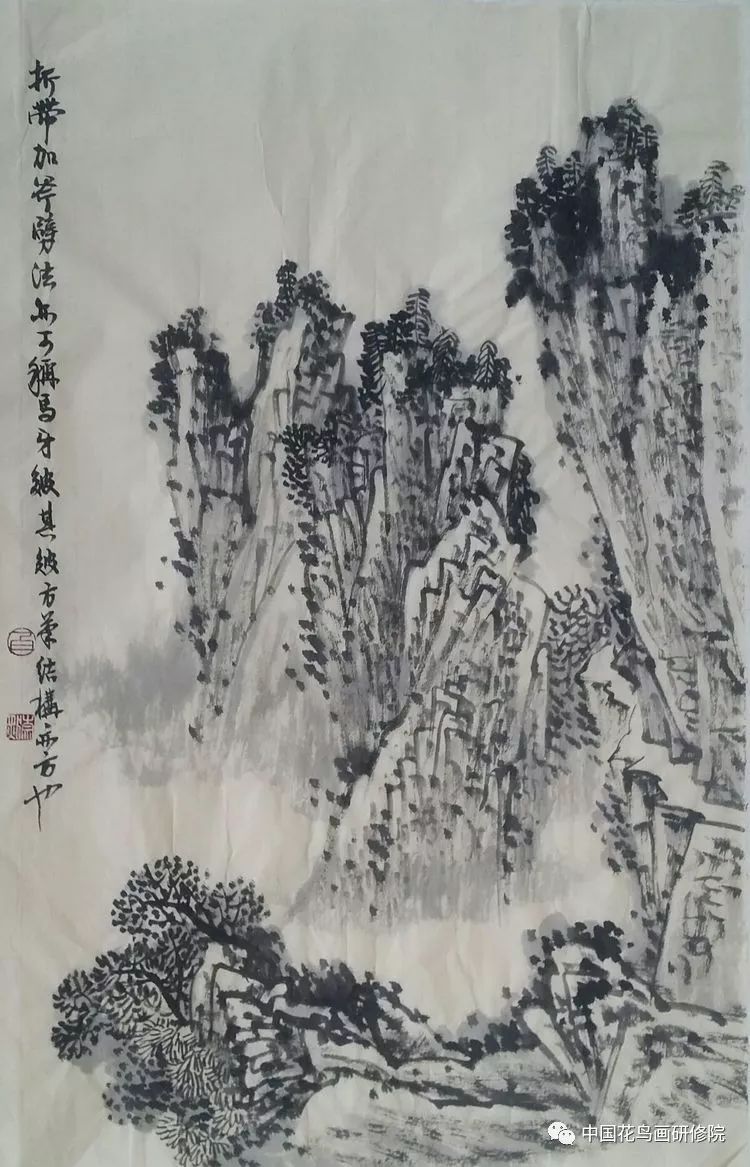 折帶加斧劈法亦可稱馬牙皴其皴方筆結構亦方也
中国花鸟画研修院